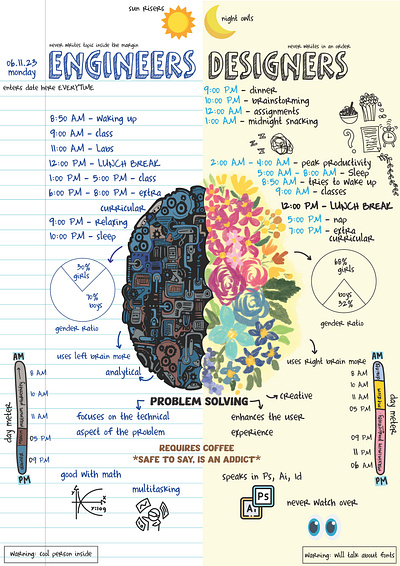 sun risers
night owls
06.11.23
monday
never writes topic inside the margin
ENGINEERS
never writes in an order
DESIGNERS
enters date here EVERYTIME
8:50 AM - waking up
9:00 AM - class
11:00 AM - Labs
12:00 PM - LUNCH BREAK
1:00 PM - 5:00 PM - class
6:00 PM - 8:00 PM - extra
curricular
9:00 PM - relaxing
10:00 PM - sleep
9:00 PM - dinner
10:00 PM - brainstorming
12:00 AM - assignments
1:00 AM - midnight snacking
2:00 AM - 4:00 AM - peak productivity
5:00 AM - 8:00 AM - Sleep
8:50 AM - tries to wake up
9:00 AM - classes
12:00 PM - LUNCH BREAK
5:00 PM - nap
7:00 PM - extra
curricular
30%
girls
70%
boys
gender ratio
68%
girls
boys
32%
gender ratio
uses left brain more
analytical
uses right brain more
creative
PROBLEM SOLVING
focuses on the technical
aspect of the problem
enhances the user
experience
AM
8 AM
10 AM
11 AM
05 PM
09 PM
PM
day meter
AM
8 AM
10 AM
11 AM
05 PM
09 PM
11 PM
06 AM
PM
medium
maximum productivity
day meter
REQUIRES COFFEE
*SAFE TO SAY, IS AN ADDICT*
good with math
y=log
multitasking
speaks in Ps, Ai, Id
Ps
Ai
never watch over
Warning: cool person inside
Warning: will talk about fonts